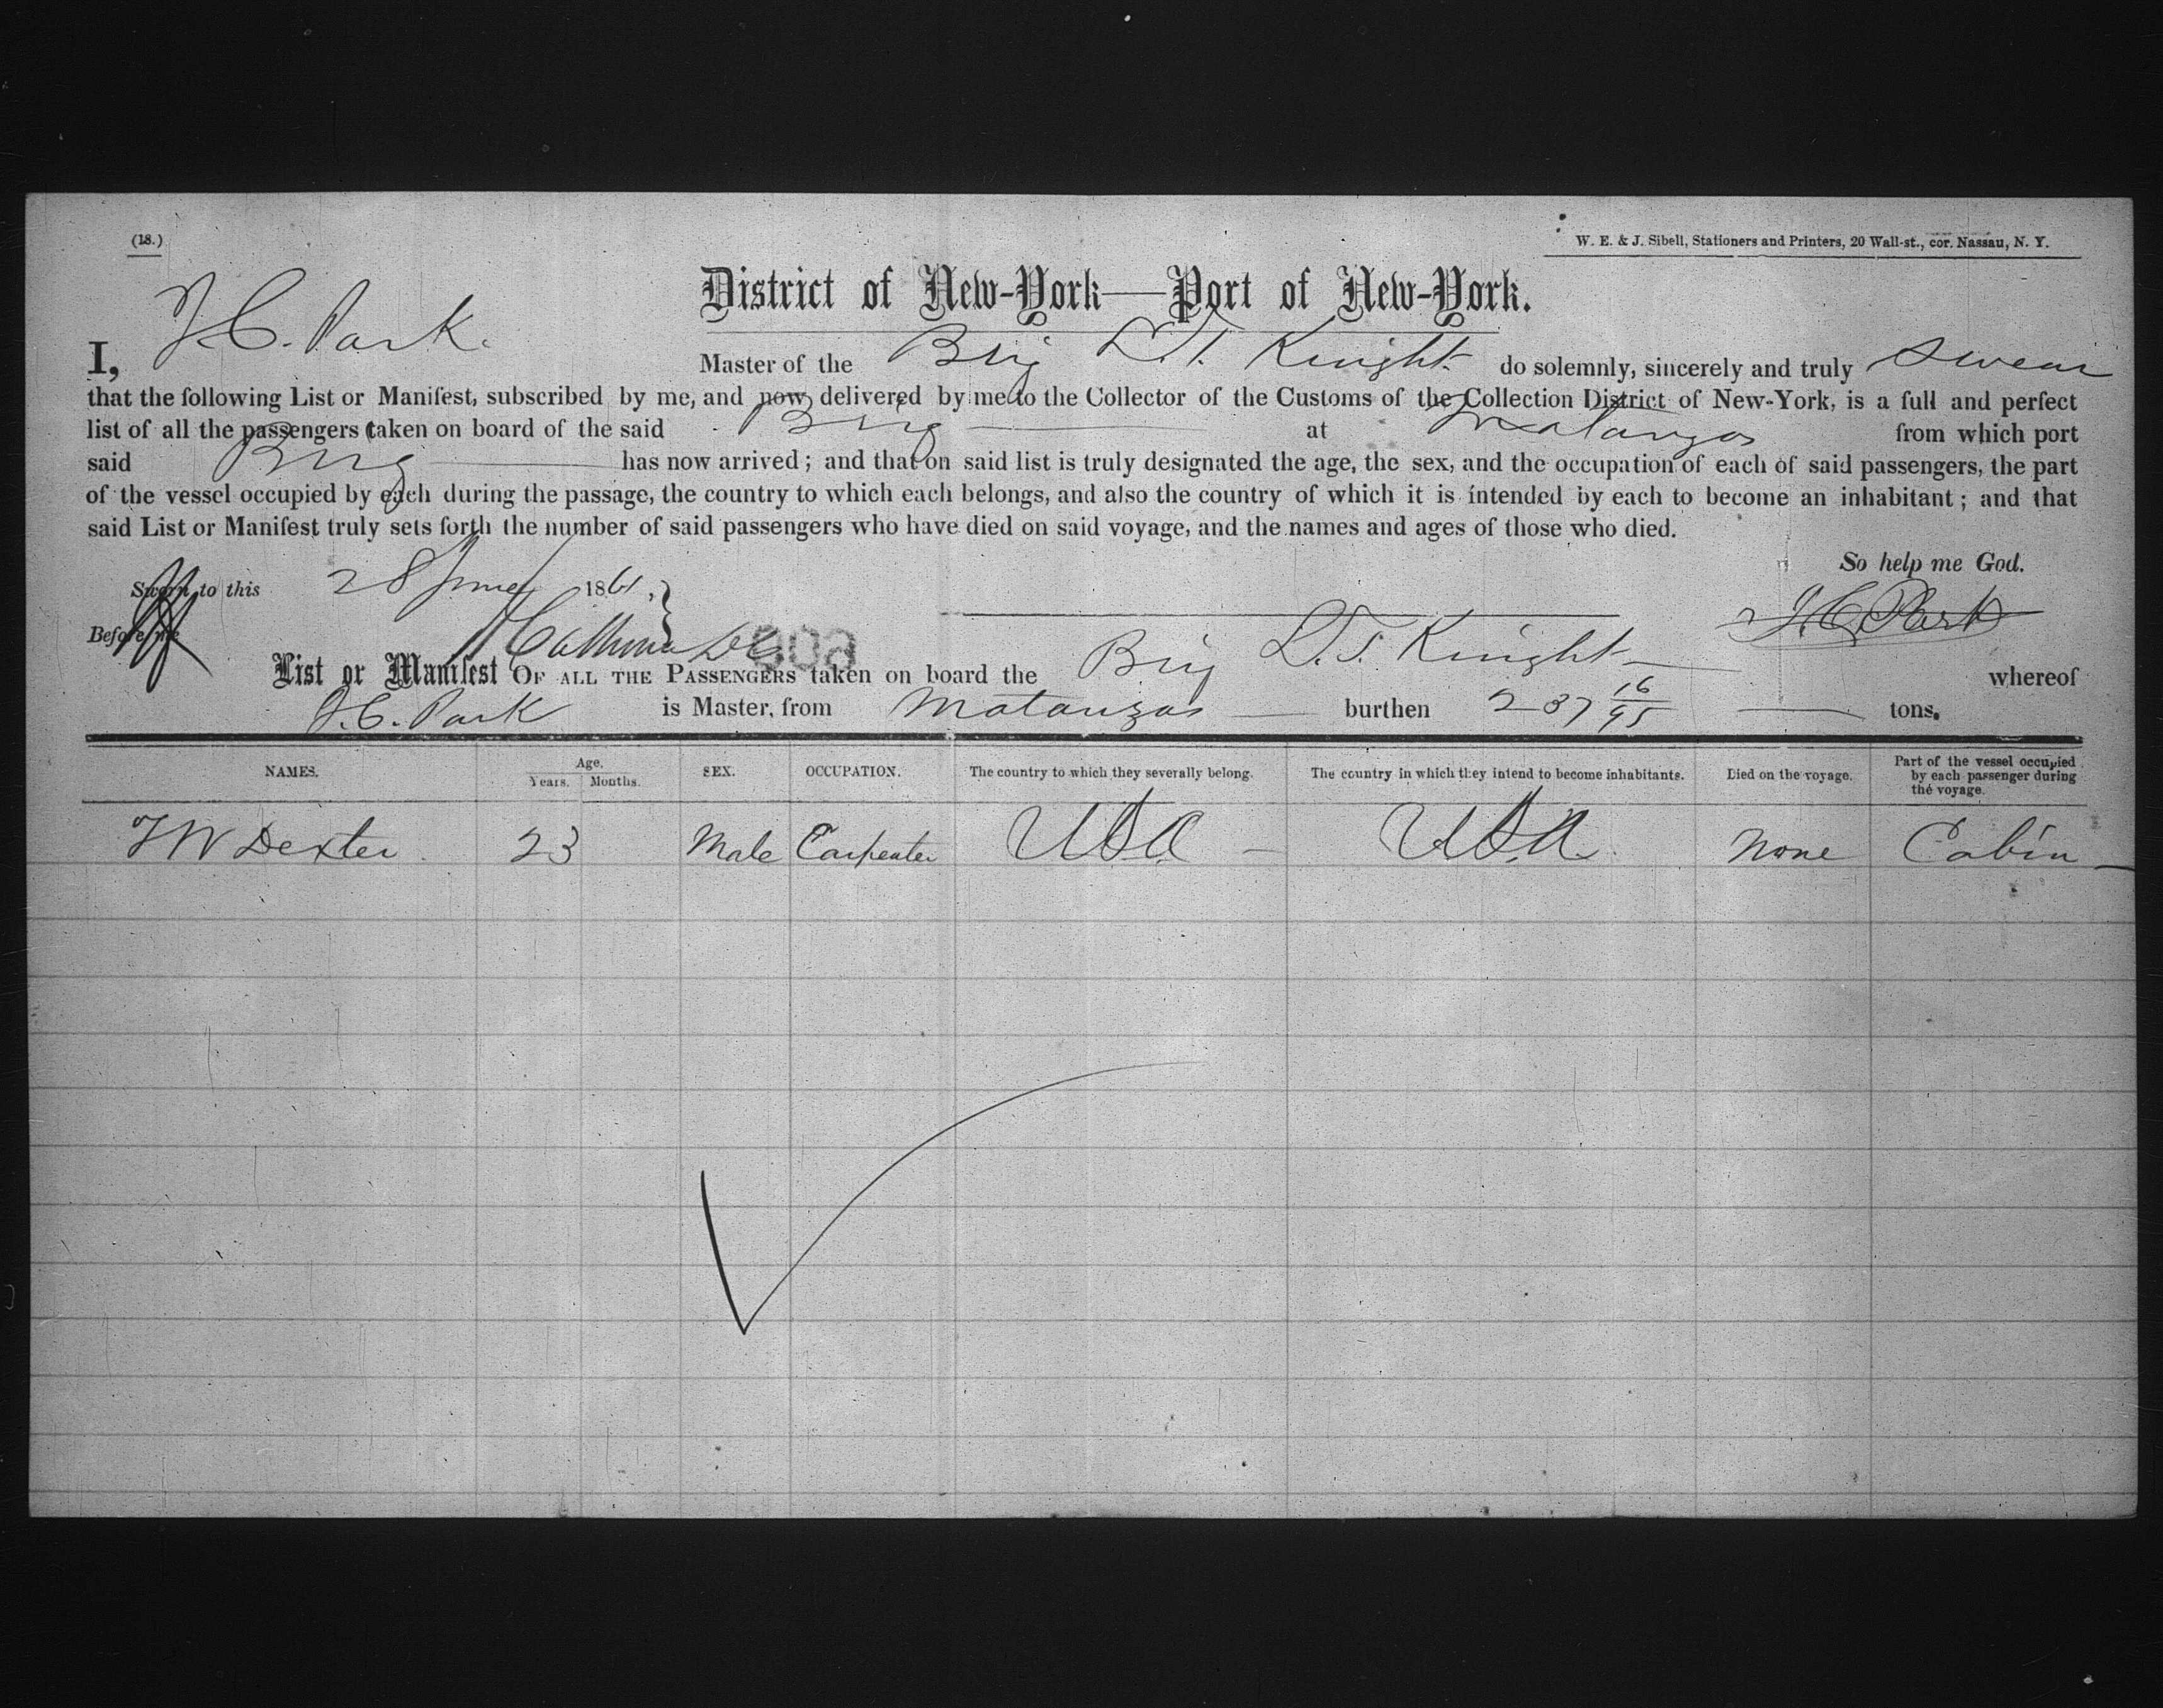 (18.)
W. E. & J. Sibell, Stationers and Printers, 20 Wall-st., cor. Nassau, N. Y.
District of New-York—Port of New-York.
I, J. C. Park. Master of the Brig L. T. Knight do solemnly, sincerely and truly swear
that the following List or Manifest, subscribed by me, and now delivered by me to the Collector of the Customs of the Collection District of New-York, is a full and perfect
list of all the passengers taken on board of the said Brig at Matanzas from which port
said Brig has now arrived; and that on said list is truly designated the age, the sex, and the occupation of each of said passengers, the part
of the vessel occupied by each during the passage, the country to which each belongs, and also the country of which it is intended by each to become an inhabitant; and that
said List or Manifest truly sets forth the number of said passengers who have died on said voyage, and the names and ages of those who died.
So help me God.
Sworn to this 28 June 1861,
Before me J. C. Park
List or Manifest OF ALL THE PASSENGERS taken on board the Brig L. T. Knight whereof
J. C. Park is Master, from Matanzas burthen 237 16/95 tons.
NAMES. Age. Years. Months. SEX. OCCUPATION. The country to which they severally belong. The country in which they intend to become inhabitants. Died on the voyage. Part of the vessel occupied by each passenger during the voyage.
J W Dexter 23 Male Carpenter USA USA None Cabin